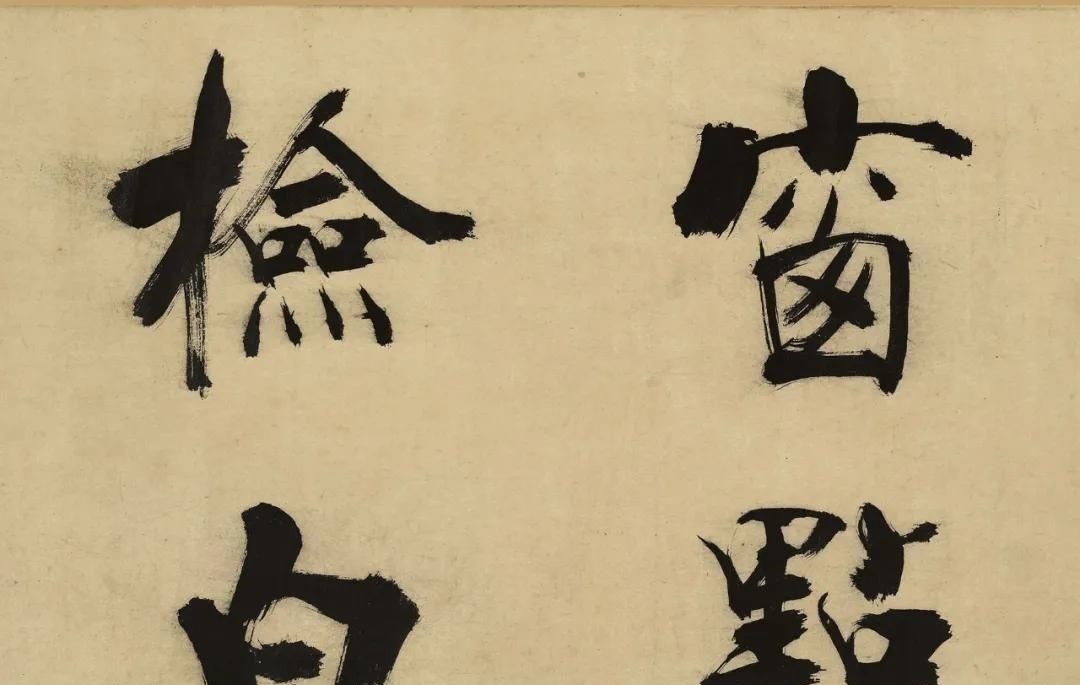 窗點
檢白